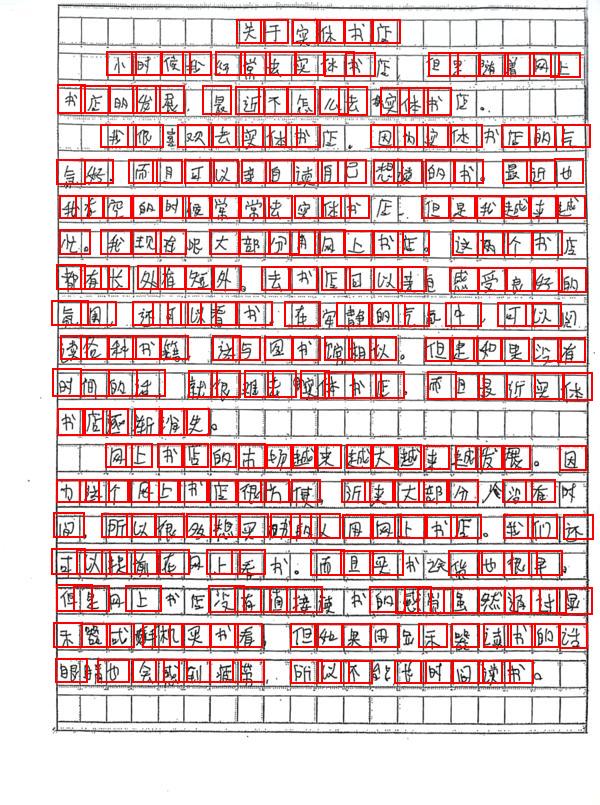 关于实体书店
小时候我经常去实体书店，但是随着网上
书店的发展，最近不怎么去实体书店。
我很喜欢去实体书店。因为实体书店的气
氛好，而且可以亲自读自己想读的书。最近也
我在空的时候常常去实体书店，但是我越来越
忙。我现在呢大部分用网上书店。这两个书店
都有长处有短处。去书店可以亲自感受良好的
氛围，还可以看书，在安静的气氛中，可以阅
读各科书籍，这与图书馆相似。但是如果没有
时间的话，就很难去实体书店，而且最近实体
书店逐渐消失。
网上书店的市场越来越大越来越发展。因
为这个网上书店很方便。近来大部分人没有时
间，所以很多想买书的人用网上书店。我们还
可以提前在网上看书。而且买书送货也很早。
但是网上书店没有直接读书的感觉虽然通过显
示器或手机买书看，但如果用显示器读书的话
眼睛也会感到疲劳，所以不能长时间读书。